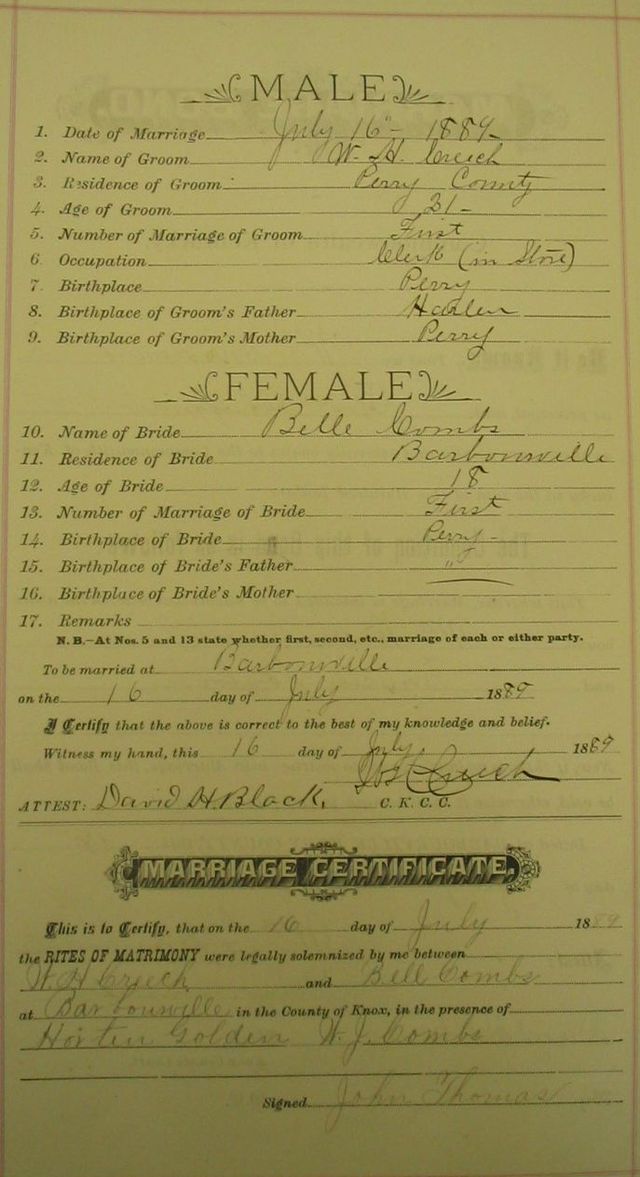 MALE
1. Date of Marriage July 16" - 1889
2. Name of Groom W. H. Creech
3. Residence of Groom Perry County
4. Age of Groom 21 -
5. Number of Marriage of Groom First
6. Occupation Clerk (in Store)
7. Birthplace Perry
8. Birthplace of Groom's Father Harlen
9. Birthplace of Groom's Mother Perry
FEMALE
10. Name of Bride Belle Combs
11. Residence of Bride Barbourville
12. Age of Bride 18
13. Number of Marriage of Bride First
14. Birthplace of Bride Perry -
15. Birthplace of Bride's Father "
16. Birthplace of Bride's Mother
17. Remarks
N. B.—At Nos. 5 and 13 state whether first, second, etc., marriage of each or either party.
To be married at Barbourville
on the 16 day of July 1889
I Certify that the above is correct to the best of my knowledge and belief.
Witness my hand, this 16 day of July 1889
Creech
ATTEST: David H. Black, C. K. C. C.
MARRIAGE CERTIFICATE.
This is to Certify, that on the 16 day of July 1889
the RITES OF MATRIMONY were legally solemnized by me between
W. H Creech and Bell Combs
at Barbourville in the County of Knox, in the presence of
Horten Golden W. J. Combs
Signed John Thomas